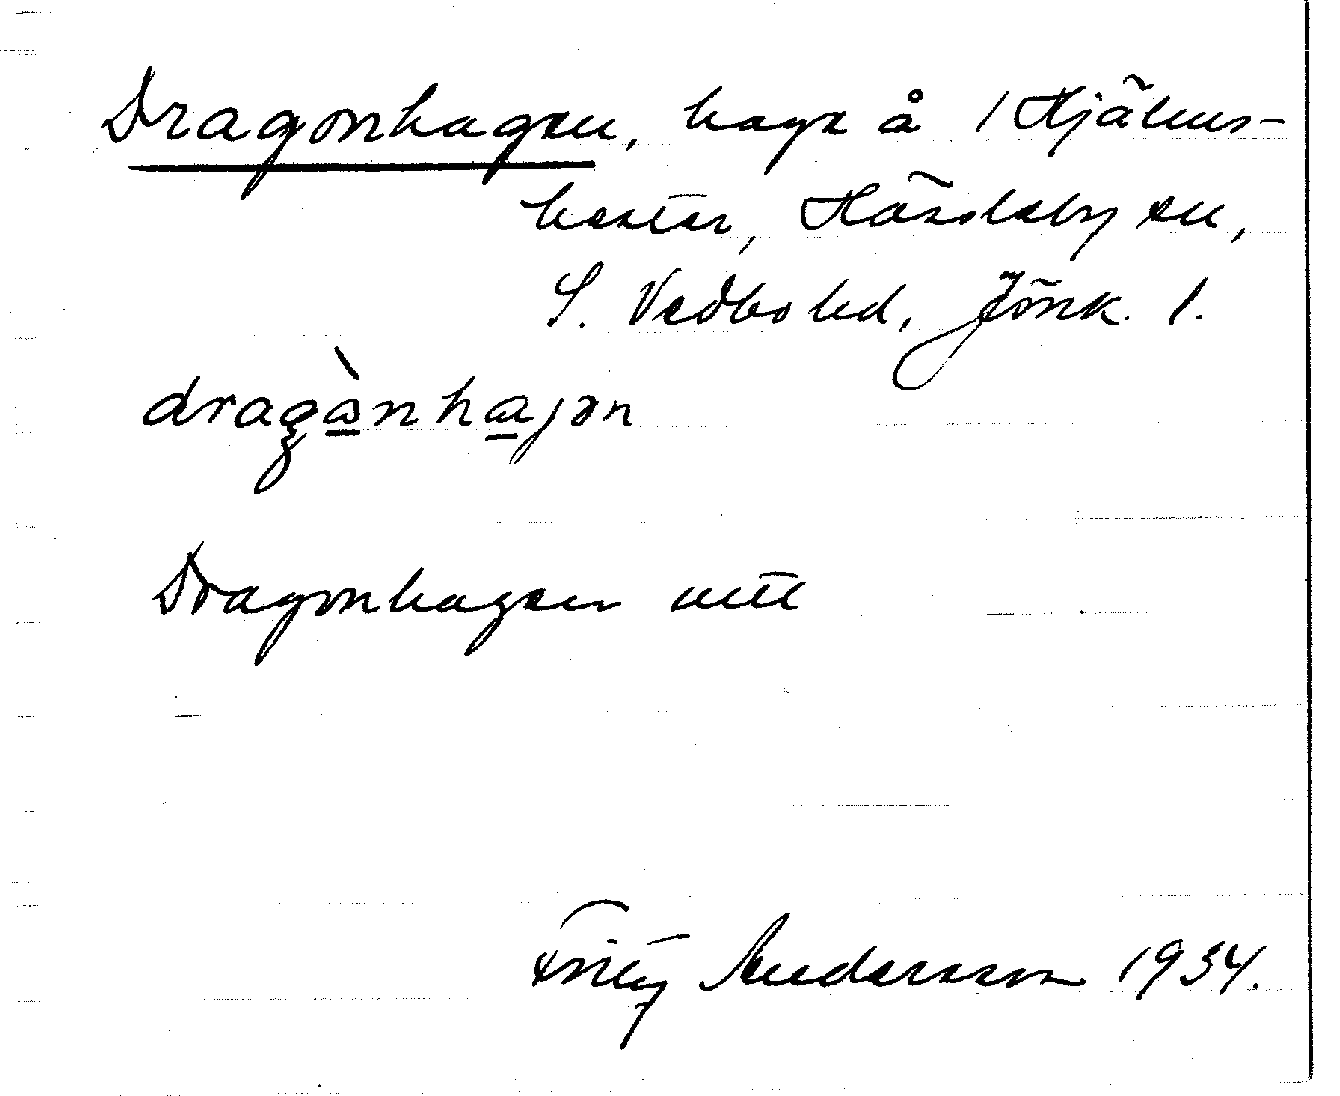 Dragonhagen, hage å 1 Hjälms-
hester, Hässleby sn,
S. Vedbo hd, Jönk. l.
dragànhajən
Dragonhagen utt
Fritz Andersson 1934.